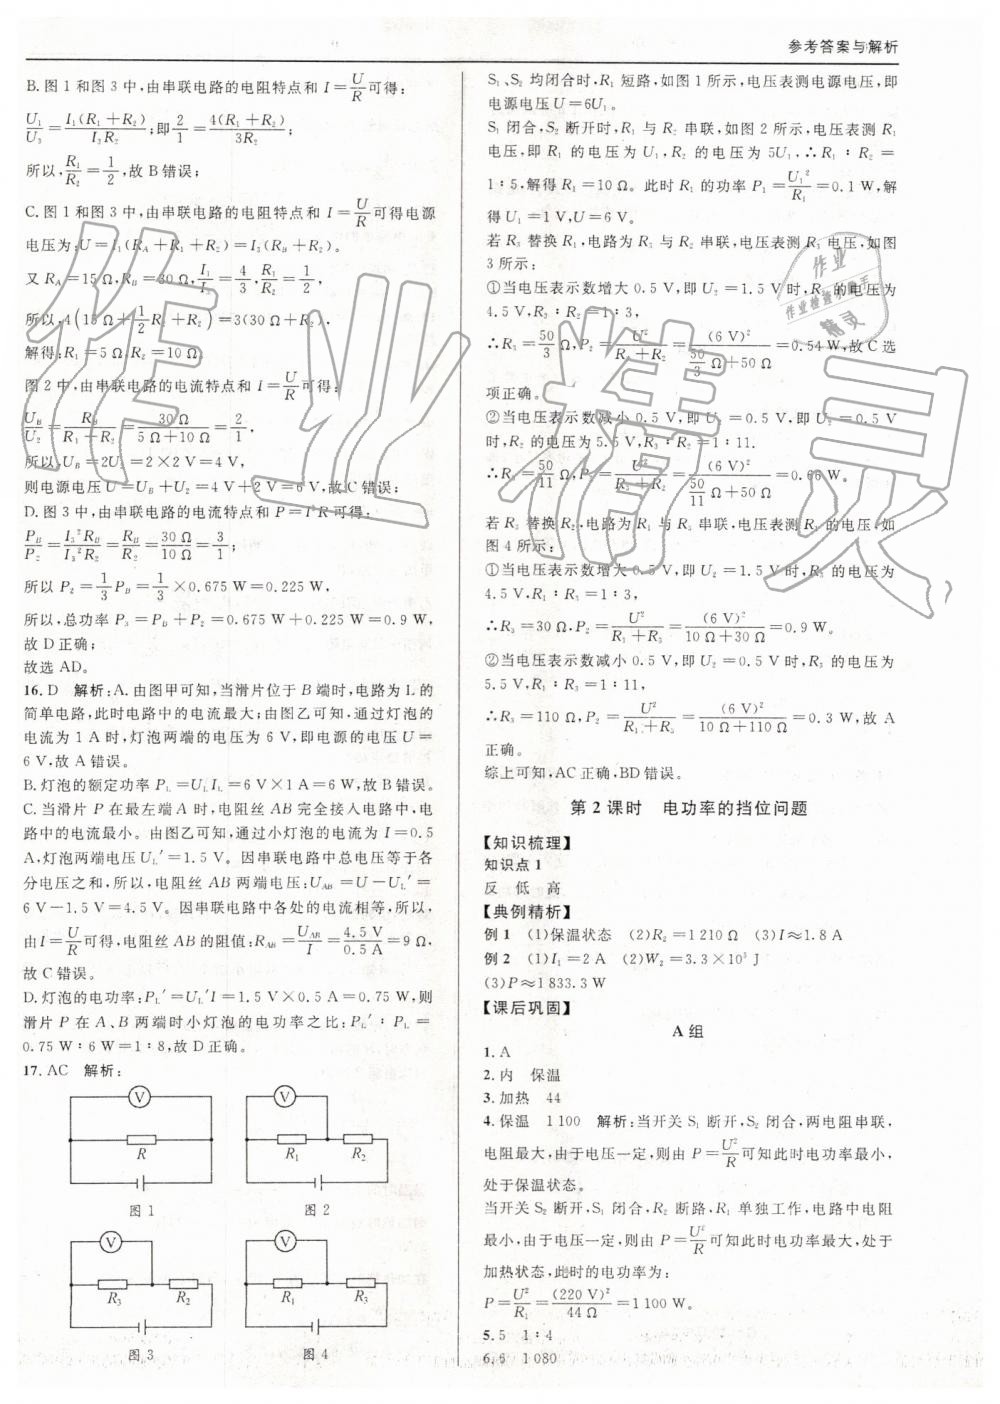 参考答案与解析
B. 图 1 和图 3 中,由串联电路的电阻特点和 I=U/R 可得:
U₁/U₃=I₁(R₁+R₂)/I₃R₂;即 2/1=4(R₁+R₂)/3R₂;
所以,R₁/R₂=1/2,故 B 错误;
C. 图 1 和图 3 中,由串联电路的电阻特点和 I=U/R 可得电源
电压为:U=I₁(R_A+R₁+R₂)=I₃(R_B+R₂)。
又 R_A=15 Ω,R_B=30 Ω,I₁/I₃=4/3,R₁/R₂=1/2,
所以,4(15 Ω+1/2 R₂+R₂)=3(30 Ω+R₂),
解得:R₁=5 Ω,R₂=10 Ω。
图 2 中,由串联电路的电流特点和 I=U/R 可得:
U_B/U₂=R_B/(R₁+R₂)=30 Ω/(5 Ω+10 Ω)=2/1,
所以,U_B=2U₂=2×2 V=4 V,
则电源电压 U=U_B+U₂=4 V+2 V=6 V,故 C 错误;
D. 图 3 中,由串联电路的电流特点和 P=I²R 可得:
P_B/P₂=I₃²R_B/I₃²R₂=R_B/R₂=30 Ω/10 Ω=3/1;
所以 P₂=1/3 P_B=1/3×0.675 W=0.225 W,
所以,总功率 P₃=P_B+P₂=0.675 W+0.225 W=0.9 W,
故 D 正确;
故选 AD。
16. D 解析:A. 由图甲可知,当滑片位于 B 端时,电路为 L 的
简单电路,此时电路中的电流最大;由图乙可知,通过灯泡的
电流为 1 A 时,灯泡两端的电压为 6 V,即电源的电压 U=
6 V,故 A 错误。
B. 灯泡的额定功率 P_L=U_L I_L=6 V×1 A=6 W,故 B 错误。
C. 当滑片 P 在最左端 A 时,电阻丝 AB 完全接入电路中,电
路中的电流最小。由图乙可知,通过小灯泡的电流为 I=0.5
A,灯泡两端电压 U_L′=1.5 V。因串联电路中总电压等于各
分电压之和,所以,电阻丝 AB 两端电压:U_AB=U-U_L′=
6 V-1.5 V=4.5 V。因串联电路中各处的电流相等,所以,
由 I=U/R 可得,电阻丝 AB 的阻值:R_AB=U_AB/I=4.5 V/0.5 A=9 Ω,
故 C 错误。
D. 灯泡的电功率:P_L′=U_L′I=1.5 V×0.5 A=0.75 W,则
滑片 P 在 A、B 两端时小灯泡的电功率之比:P_L′∶P_L=
0.75 W∶6 W=1∶8,故 D 正确。
17. AC 解析:
V
R
图 1
V
R₁ R₂
图 2
V
R₃ R₂
图 3
V
R₁ R₃
图 4
S₁、S₂ 均闭合时,R₁ 短路,如图 1 所示,电压表测电源电压,即
电源电压 U=6U₁。
S₁ 闭合,S₂ 断开时,R₁ 与 R₂ 串联,如图 2 所示,电压表测 R₁
电压,即 R₁ 的电压为 U₁,R₂ 的电压为 5U₁,∴R₁∶R₂=
1∶5,解得 R₁=10 Ω。此时 R₁ 的功率 P₁=U₁²/R₁=0.1 W,解
得 U₁=1 V,U=6 V。
若 R₃ 替换 R₁,电路为 R₃ 与 R₂ 串联,电压表测 R₃ 电压,如图
3 所示:
①当电压表示数增大 0.5 V,即 U₂=1.5 V 时,R₂ 的电压为
4.5 V,R₃∶R₂=1∶3,
∴R₃=50/3 Ω,P₂=U²/(R₃+R₂)=(6 V)²/(50/3 Ω+50 Ω)=0.54 W,故 C 选
项正确。
②当电压表示数减小 0.5 V,即 U₂=0.5 V,即 U₂=0.5 V
时,R₂ 的电压为 5.5 V,R₃∶R₂=1∶11.
∴R₃=50/11 Ω,P₂=U²/(R₃+R₂)=(6 V)²/(50/11 Ω+50 Ω)=0.66 W。
若 R₃ 替换 R₂,电路为 R₁ 与 R₃ 串联,电压表测 R₁ 的电压,如
图 4 所示:
①当电压表示数增大 0.5 V,即 U₂=1.5 V 时,R₃ 的电压为
4.5 V,R₁∶R₃=1∶3,
∴R₃=30 Ω,P₂=U²/(R₁+R₃)=(6 V)²/(10 Ω+30 Ω)=0.9 W。
②当电压表示数减小 0.5 V,即 U₂=0.5 V 时,R₃ 的电压为
5.5 V,R₁∶R₃=1∶11,
∴R₃=110 Ω,P₂=U²/(R₁+R₃)=(6 V)²/(10 Ω+110 Ω)=0.3 W,故 A
正确。
综上可知,AC 正确,BD 错误。
第 2 课时 电功率的挡位问题
【知识梳理】
知识点 1
反 低 高
【典例精析】
例 1 (1)保温状态 (2)R₂=1 210 Ω (3)I≈1.8 A
例 2 (1)I₁=2 A (2)W₂=3.3×10⁵ J
(3)P≈1 833.3 W
【课后巩固】
A 组
1. A
2. 内 保温
3. 加热 44
4. 保温 1 100 解析:当开关 S₁ 断开,S₂ 闭合,两电阻串联,
电阻最大,由于电压一定,则由 P=U²/R 可知此时电功率最小,
处于保温状态。
当开关 S₂ 断开,S₁ 闭合,R₂ 断路,R₁ 单独工作,电路中电阻
最小,由于电压一定,则由 P=U²/R 可知此时电功率最大,处于
加热状态,此时的电功率为:
P=U²/R₁=(220 V)²/44 Ω=1 100 W。
5. 5 1∶4
6. 6 1 080
作业精灵
作业
作业检查小助手
精灵